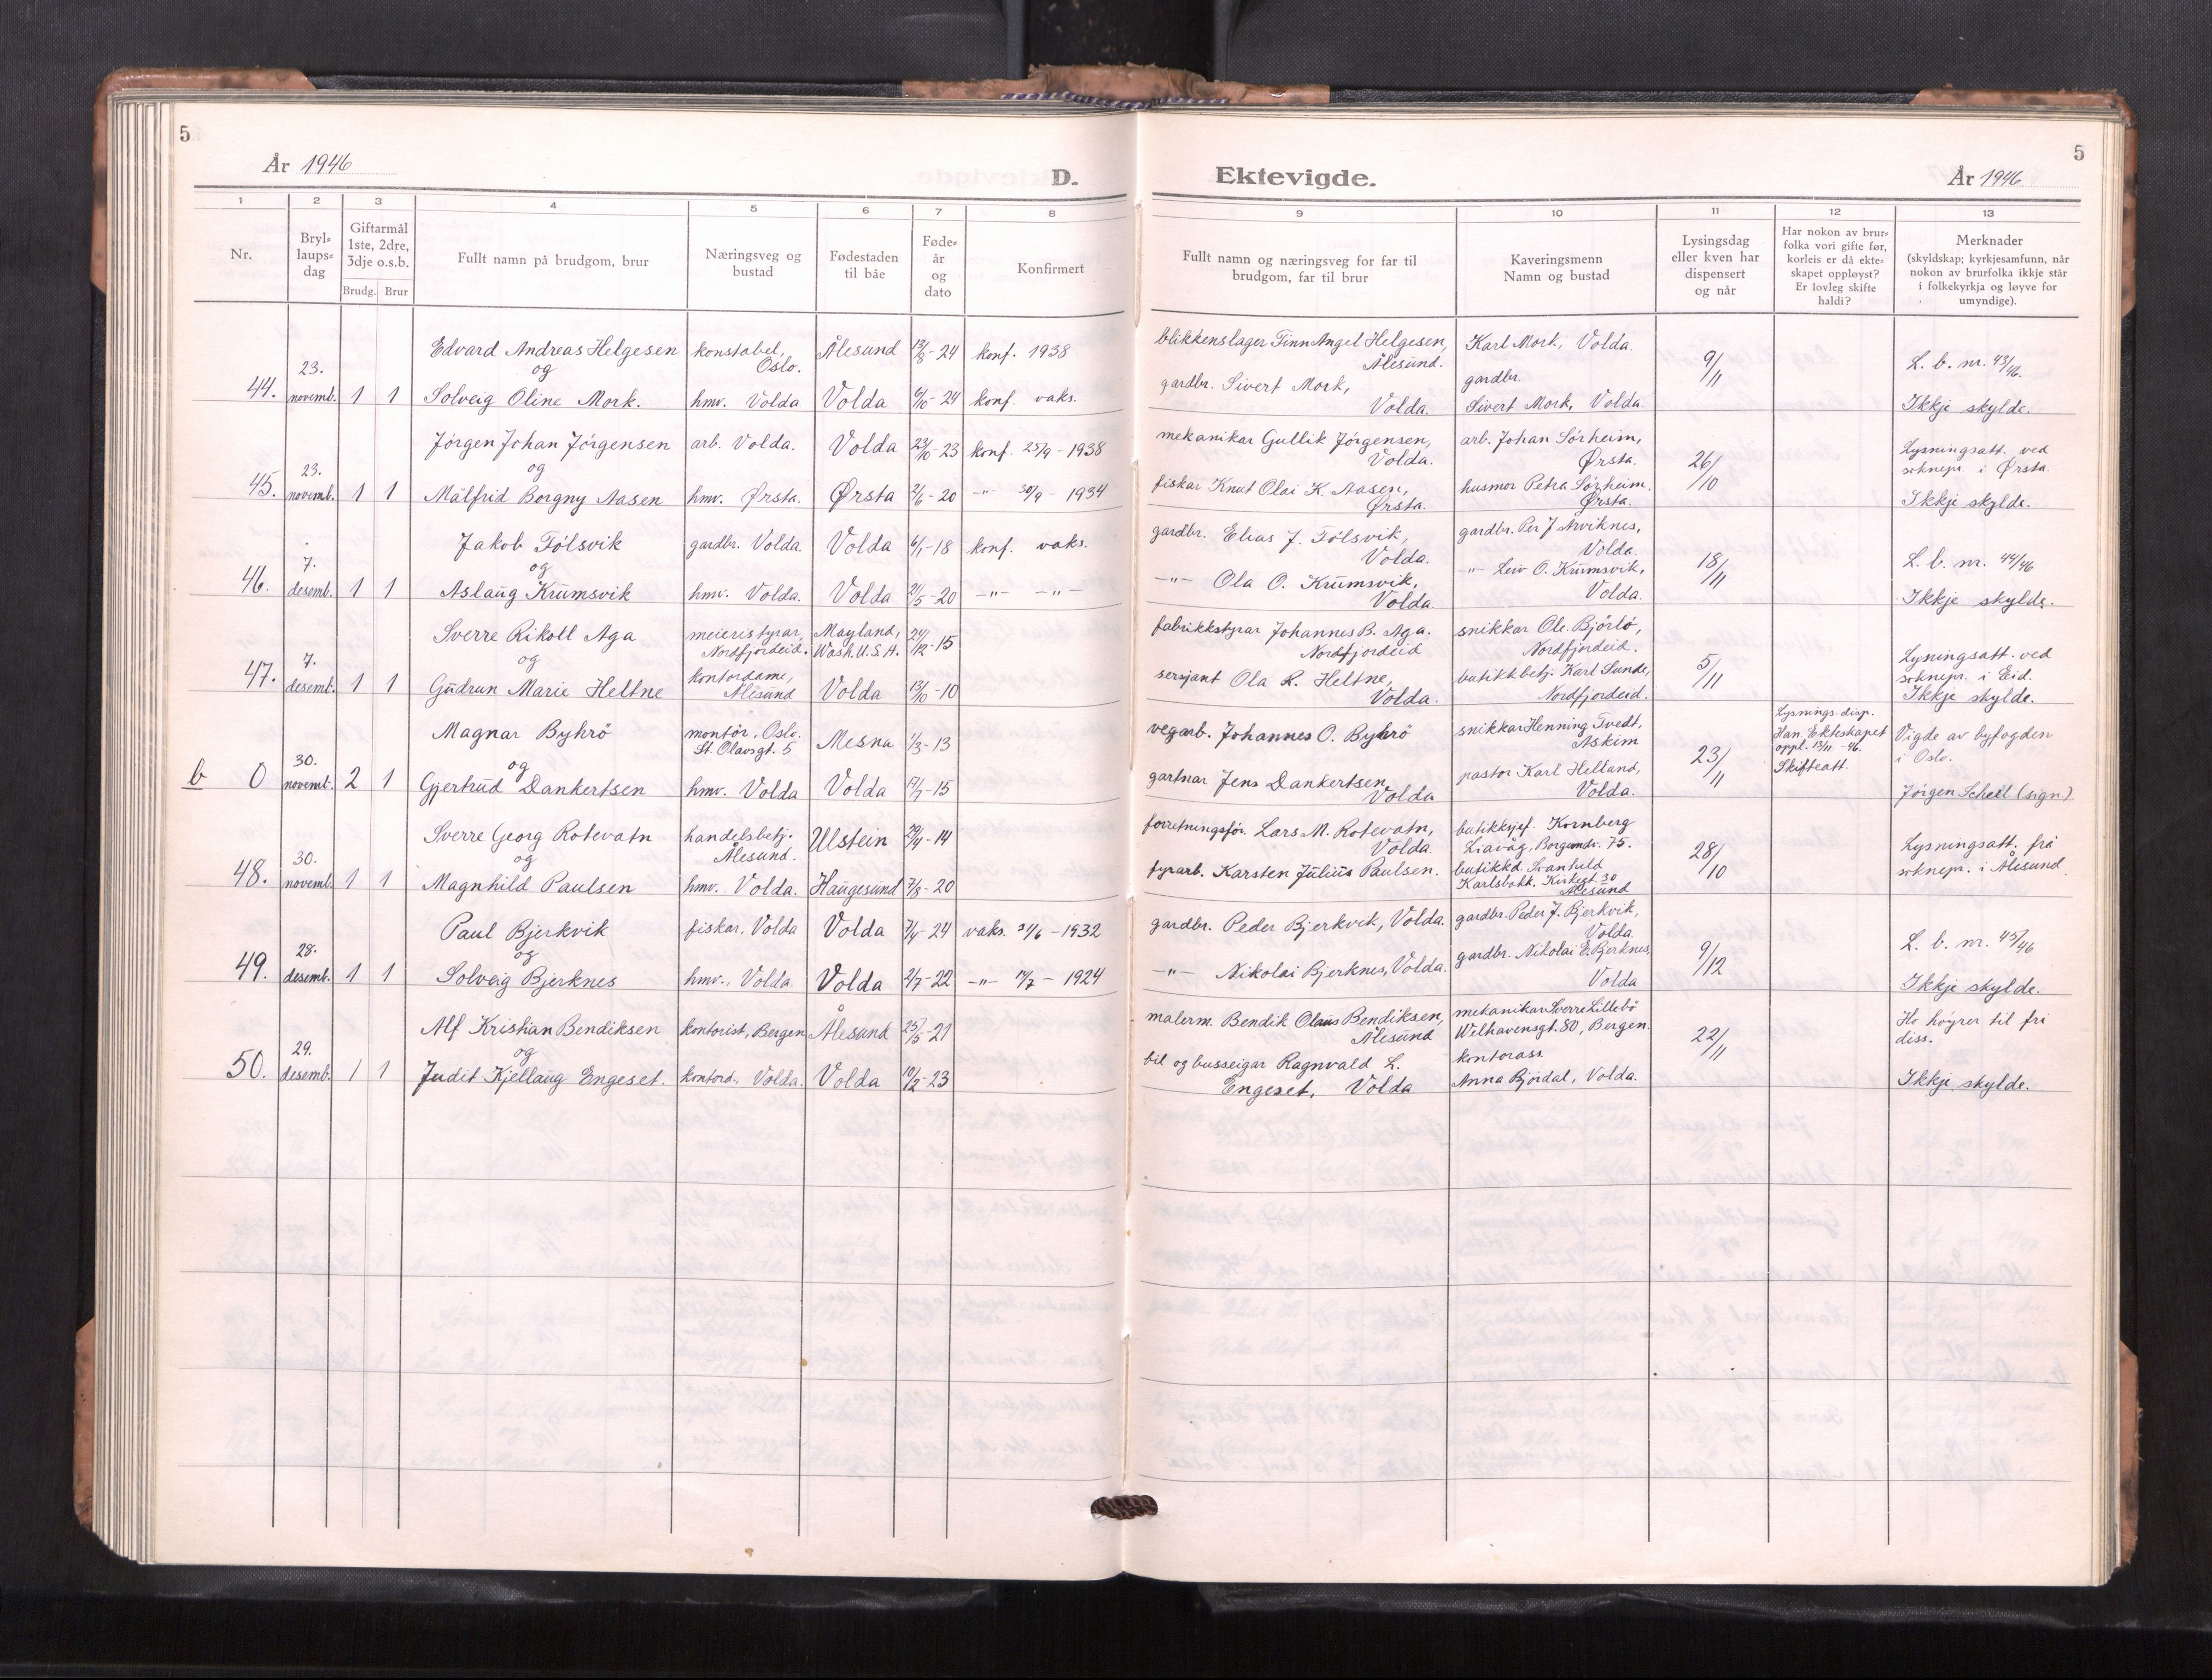 5
År 1946
D.
1
2
3
4
5
6
7
8
Nr.
Bryl-
laups-
dag
Giftarmål
1ste, 2dre,
3dje o.s.b.
Brudg. Brur
Fullt namn på brudgom, brur
Næringsveg og
bustad
Fødestaden
til båe
Føde-
år
og
dato
Konfirmert
Edvard Andreas Helgesen konstabel, Oslo. Ålesund 13/8-24 konf. 1938
og
44. 23. novemb. 1 1 Solveig Oline Mork. hmv. Volda Volda 6/10-24 konf. vaks.
Jörgen Johan Jörgensen arb. Volda. Volda 23/10-23 konf. 25/9-1938
og
45. 23. novemb. 1 1 Målfrid Borgny Aasen hmv. Ørsta. Ørsta 2/6-20 -"- 30/9-1934
Jakob Fölsvik gardbr. Volda. Volda 6/1-18 konf. vaks.
og
46. 7. desemb. 1 1 Aslaug Krumsvik hmv. Volda. Volda 21/5-20 -"- -"-
Sverre Rikoll Aga meieristyrar, Nordfjordeid. Mayland, Wash. U.S.A. 24/12-15
og
47. 7. desemb. 1 1 Gudrun Marie Heltne kontordame, Ålesund Volda 13/10-10
Magnar Byhrö montör, Oslo. St. Olavsgt. 5 Mesna 1/3-13
og
b 0 30. novemb. 2 1 Gjertrud Dankertsen hmv. Volda Volda 17/7-15
Sverre Georg Rotevatn handelsbetj. Ålesund. Ulstein 29/4-14
og
48. 30. novemb. 1 1 Magnhild Paulsen hmv. Volda. Haugesund 7/8-20
Paul Bjerkvik fiskar, Volda Volda 7/4-24 vaks. /6-1932
og
49. 28. desemb. 1 1 Solveig Bjerknes hmv., Volda. Volda 2/7-22 -"- /7-1924
Alf Kristian Bendiksen kontorist, Bergen Ålesund 25/5-21
og
50. 29. desemb. 1 1 Judit Kjellaug Engeset. kontord., Volda. Volda 10/2-23
5
Ektevigde.
År 1946
9
10
11
12
13
Fullt namn og næringsveg for far til
brudgom, far til brur
Kaveringsmenn
Namn og bustad
Lysingsdag
eller kven har
dispensert
og når
Har nokon av brur-
folka vori gifte før,
korleis er då ekte-
skapet oppløyst?
Er lovleg skifte
haldi?
Merknader
(skyldskap; kyrkjesamfunn, når
nokon av brurfolka ikkje står
i folkekyrkja og løyve for
umyndige).
blikkenslager Finn Angel Helgesen, Ålesund. Karl Mork, Volda. 9/11 L. b. nr. 43/46.
gardbr. Sivert Mork, Volda. gardbr. Sivert Mork, Volda. Ikkje skylde.
mekanikar Gullik Jörgensen, Volda. arb. Johan Sörheim, Ørsta. 26/10 Lysningsatt. ved soknepr. i Ørsta.
fiskar Knut Olai K. Aasen, Ørsta. husmor Petra Sörheim. Ørsta. Ikkje skylde.
gardbr. Elias J. Fölsvik, Volda. gardbr. Per J Arviknes, Volda. 18/11 L. b. nr. 44/46
-"- Ola O. Krumsvik, Volda. -"- Leiv O. Krumsvik, Volda. Ikkje skylde.
fabrikkstyrar Johannes B. Aga. Nordfjordeid snikkar Ole Björlö, Nordfjordeid. 5/11 Lysningsatt. ved soknepr. i Eid.
sersjant Ola R. Heltne, Volda. butikkbetj. Karl Sunde, Nordfjordeid. Ikkje skylde.
vegarb. Johannes O. Byhrö snikkar Henning Tvedt, Askim 23/11 Lysnings-disp. Han. Ekteskapet oppl. 13/11-46. Skifteatt. Vigde av byfogden i Oslo.
gartnar Jens Dankertsen, Volda pastor Karl Helland, Volda. Jörgen Schell (sign)
forretningsför. Lars M. Rotevatn, Volda. butikksjef. Kornberg Liavåg, Borgundv. 75. 28/10 Lysningsatt. frå soknepr. i Ålesund.
fyrarb. Karsten Julius Paulsen. butikkd. Svanhild Karlsbakk. Kirkegt. 30 Ålesund
gardbr. Peder Bjerkvik, Volda. gardbr. Peder J. Bjerkvik, Volda. 9/12 L. b. nr. 45/46
-"- Nikolai Bjerknes, Volda. gardbr. Nikolai E. Bjerknes, Volda Ikkje skylde.
malerm. Bendik Olaus Bendiksen, Ålesund mekanikar Sverre Lillebö Welhavensgt. 80, Bergen. 22/11 Ho höyrer til fri diss.
bil og busseigar Ragnvald L. Engeset, Volda kontorass. Anna Björdal, Volda. Ikkje skylde.